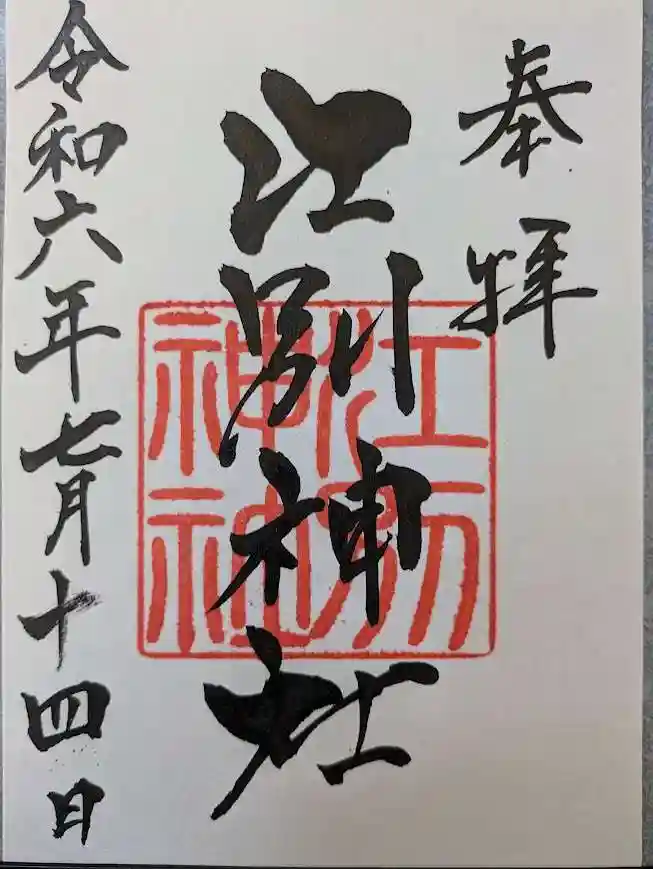 奉拝
江別神社
江別
神社
令和六年七月十四日